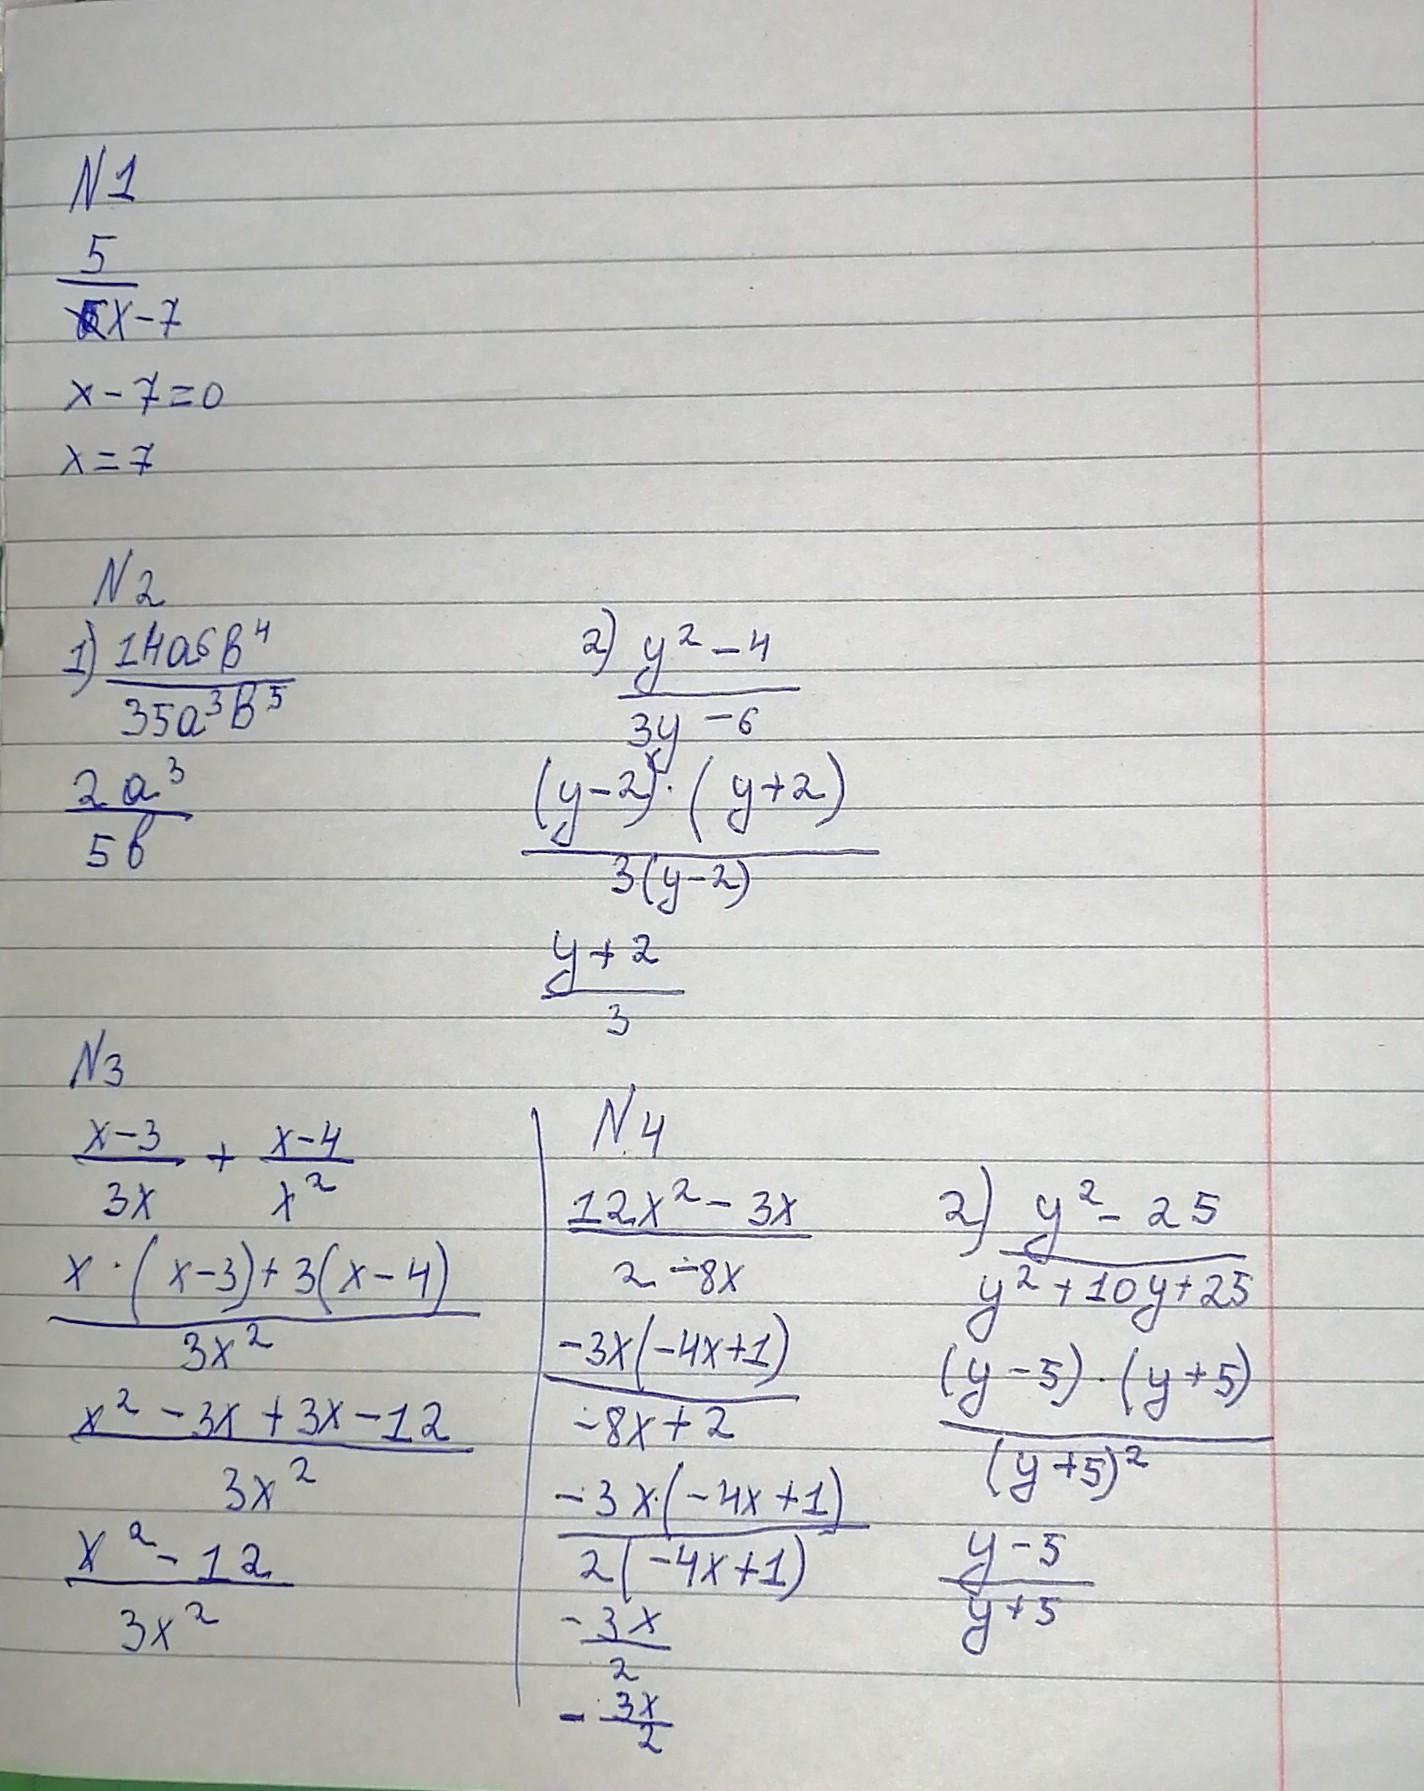 N1
5
x-7
x-7=0
x=7
N2
1) 14a6b⁴
35a³b⁵
2a³
5b
2) y²-4
3y-6
(y-2)·(y+2)
3(y-2)
y+2
3
N3
x-3 + x-4
3x x²
x·(x-3)+3(x-4)
3x²
x²-3x+3x-12
3x²
x²-12
3x²
N4
12x²-3x
2-8x
-3x(-4x+1)
-8x+2
-3x·(-4x+1)
2(-4x+1)
-3x
2
- 3x
2
2) y²-25
y²+10y+25
(y-5)·(y+5)
(y+5)²
y-5
y+5